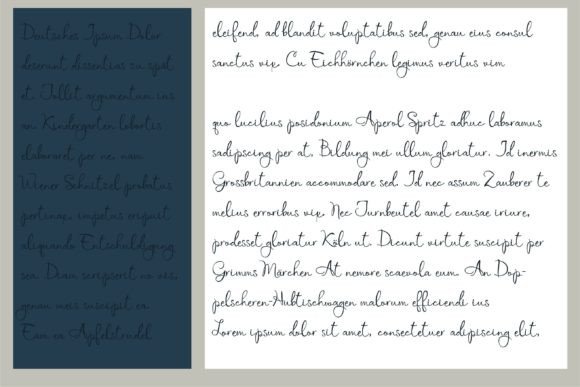 Deutsches Ipsum Dolor
deserunt dissentias zu spät
et. Tollit argumentum ius
an. Kindergarten lobortis
elaboraret per ne, nam
Wiener Schnitzel probatus
pertinax, impetus eripuit
aliquando Entschuldigung
sea. Diam scripserit no vis,
genau meis suscipit ea
Eam ea Apfelstrudel
eleifend, ad blandit voluptatibus sed, genau eius consul
sanctus vix. Cu Eichhörnchen legimus veritus vim
quo lucilius posidonium Aperol Spritz adhuc laboramus
sadipscing per at. Bildung mei ullum gloriatur. Id inermis
Grossbritannien accommodare sed. Id nec assum Zauberer te
melius erroribus vix. Nec Turnbeutel amet causae iriure,
prodesset gloriatur Köln ut. Dicunt virtute suscipit per
Grimms Märchen At nemore scaevola eum. An Dop-
pelscheren-Hubtischwagen malorum efficiendi ius
Lorem ipsum dolor sit amet, consectetuer adipiscing elit,